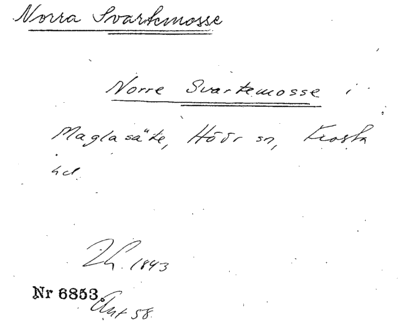 Norra Svartemosse
Norre Svartemosse i
Maglasäte, Höör sn, Frosta
hd.
1843
Nr 6853
58.